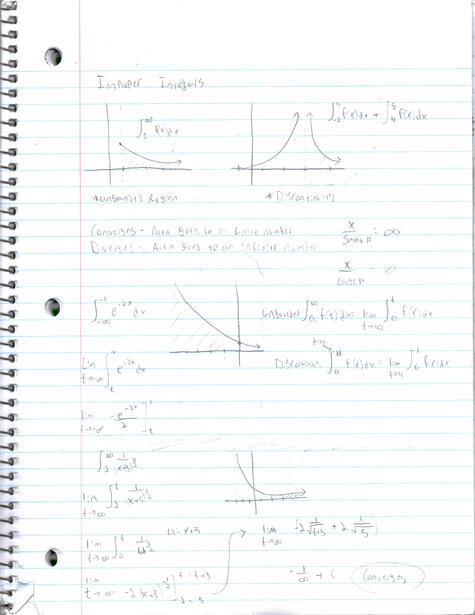 Improper Integrals
∫₁^∞ f(x)dx
∫₋₂⁴ f(x)dx + ∫₄⁸ f(x)dx
*unbounded Region
*Discontinuity
Converges - Area goes to a finite number
Diverges - Area goes to an infinite number
x/Small # = ∞
x/Large # = 0
∫₋∞⁻¹ e^(-2x) dx
unbounded ∫ₐ^∞ f(x)dx = lim t→∞ ∫ₐ^t f(x)dx
lim t→-∞ ∫ₜ e^(-2x) dx
f(x)dx = lim t→4 f(x)dx
lim t→-∞ -e^(-2x)/2
∫₂^∞ 1/(x+3)^(3/2)
lim t→∞ ∫₂^t 1/(x+3)^(3/2)
lim t→∞ ∫₂^t 1/u^(3/2)
u=x+3
lim t→∞ -2(x+3)
lim t→∞ -2 1/√(t+3) + 2 1/√5
-1/∞ + C
Converges